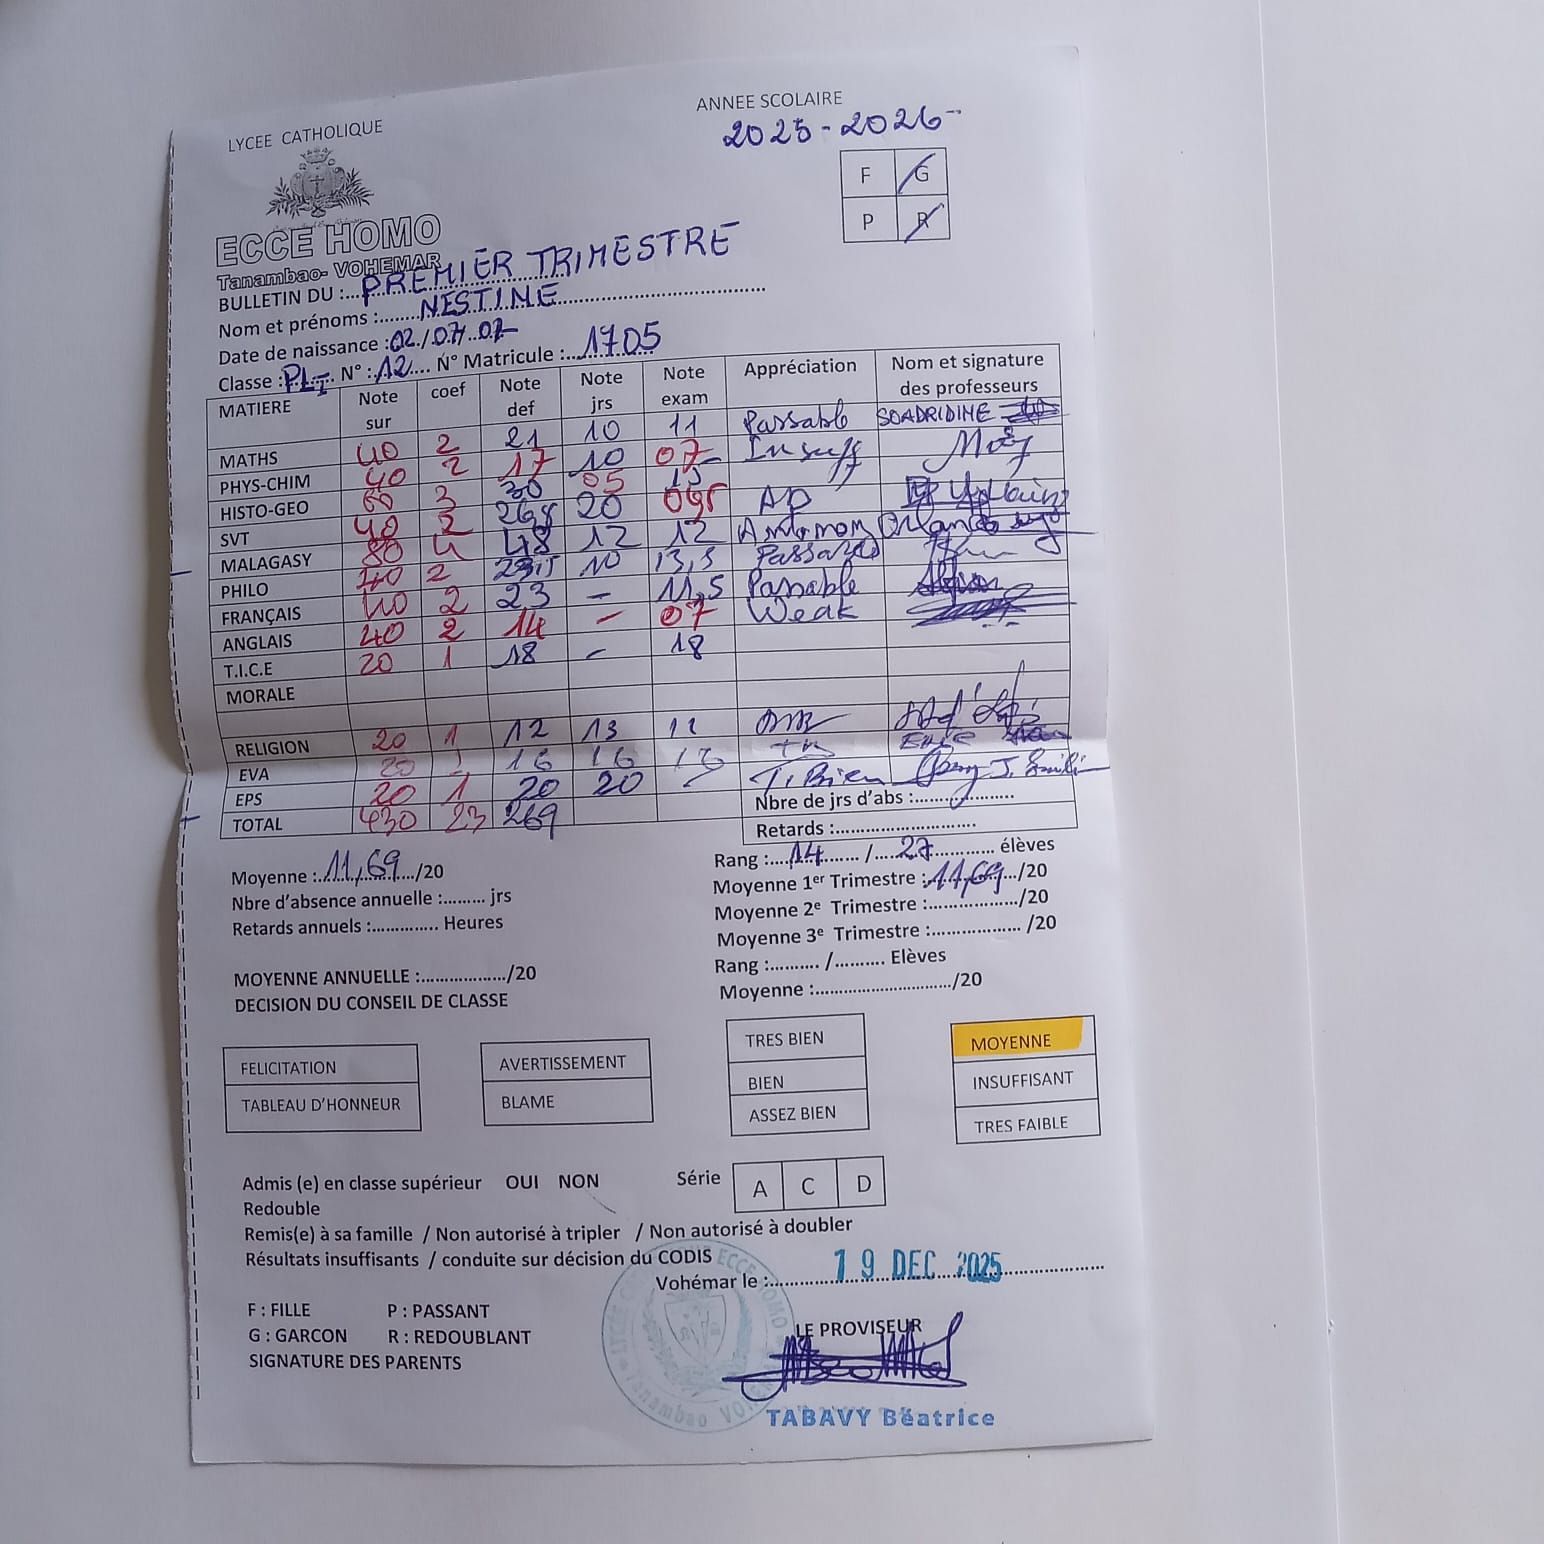 LYCEE CATHOLIQUE
ANNEE SCOLAIRE
2025-2026
F G
P R
ECCE HOMO
Tanambao- VOHEMAR
BULLETIN DU :... PREMIER TRIMESTRE
Nom et prénoms :........NESTINE
Date de naissance :02/07/07
Classe : PLI N° :12.... N° Matricule :...1705
MATIERE Note sur coef Note def Note jrs Note exam Appréciation Nom et signature des professeurs
MATHS 40 2 21 10 11 Passable SOADRIDINE
PHYS-CHIM 40 2 17 10 07 Insuff
HISTO-GEO 60 3 30 05
SVT 40 2 20
MALAGASY 80 4 48 12 12
PHILO 40 2 23,5 10 13,5 Passable
FRANÇAIS 40 2 23 - 11,5 Passable
ANGLAIS 40 2 14 - 07 Weak
T.I.C.E 20 1 18 - 18
MORALE
RELIGION 20 1 12 13 11
EVA 20 1 16 16 16
EPS 20 1 20 20 T. Bien
TOTAL 430 23 269
Nbre de jrs d'abs :....................
Retards :............................
Moyenne :.11,69 /20
Rang :....14....... /.....27.............. élèves
Moyenne 1er Trimestre :.11,69.../20
Nbre d'absence annuelle :......... jrs
Moyenne 2e Trimestre :.................../20
Retards annuels :.............. Heures
Moyenne 3e Trimestre :................... /20
Rang :.......... /.......... Elèves
MOYENNE ANNUELLE :.................../20
Moyenne :............................../20
DECISION DU CONSEIL DE CLASSE
FELICITATION
TABLEAU D'HONNEUR
AVERTISSEMENT
BLAME
TRES BIEN
BIEN
ASSEZ BIEN
MOYENNE
INSUFFISANT
TRES FAIBLE
Admis (e) en classe supérieur OUI NON
Série A C D
Redouble
Remis(e) à sa famille / Non autorisé à tripler / Non autorisé à doubler
Résultats insuffisants / conduite sur décision du CODIS
Vohémar le :..........19 DEC 2025..........
F : FILLE P : PASSANT
G : GARCON R : REDOUBLANT
SIGNATURE DES PARENTS
LE PROVISEUR
TABAVY Béatrice